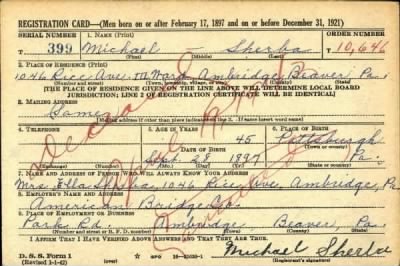 REGISTRATION CARD—(Men born on or after February 17, 1897 and on or before December 31, 1921)
SERIAL NUMBER 1. NAME (Print) ORDER NUMBER
399 Michael — Sherba 10,646
(First) (Middle) (Last)
2. PLACE OF RESIDENCE (Print)
1046 Rice Ave. Ward Ambridge, Beaver, Pa.
(Number and street) (Town, township, village, or city) (County) (State)
[THE PLACE OF RESIDENCE GIVEN ON THE LINE ABOVE WILL DETERMINE LOCAL BOARD
JURISDICTION; LINE 2 OF REGISTRATION CERTIFICATE WILL BE IDENTICAL]
3. MAILING ADDRESS
Same
[Mailing address if other than place indicated on line 2. If same insert word same]
4. TELEPHONE 5. AGE IN YEARS 6. PLACE OF BIRTH
45 Pittsburgh
DATE OF BIRTH
Sept. 28 1897 Pa.
7. NAME AND ADDRESS OF PERSON WHO WILL ALWAYS KNOW YOUR ADDRESS
Mrs. Ella Sherba, 1046 Rice Ave, Ambridge, Pa
8. EMPLOYER'S NAME AND ADDRESS
American Bridge Co.
9. PLACE OF EMPLOYMENT OR BUSINESS
Park Rd. Ambridge Beaver, Pa.
(Number and street or R. F. D. number) (Town) (County) (State)
I AFFIRM THAT I HAVE VERIFIED ABOVE ANSWERS AND THAT THEY ARE TRUE.
D. S. S. Form 1
(Revised 1-1-42)
Michael Sherba